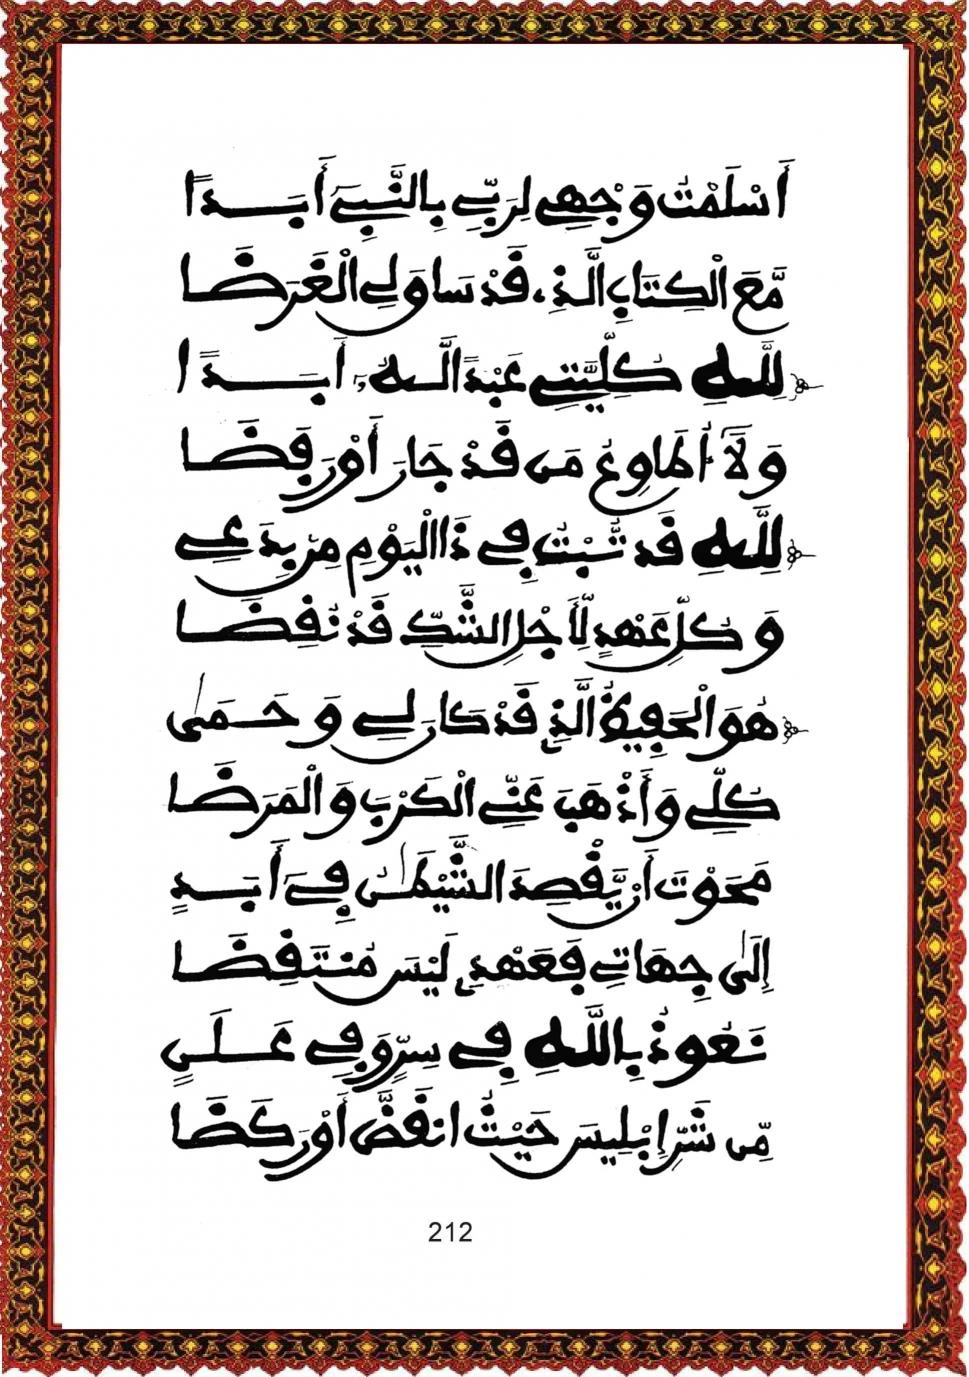 أَسْلَمْتُ وَجْهِي لِرَبِّي بِالنَّبِيِّ أَبَدًا
مَّعَ الْكِتَابِ الَّذِي قَدْ سَاقَ لِي الْغَرَضَا
لِلَّهِ كُلِّيَّتِي عَبْدًا لَّهُ أَبَدًا
وَلَا أُطَاوِعُ مَن قَدْ جَارَ أَوْ رَفَضَا
لِلَّهِ قَدْ تُبْتُ فِي ذَا الْيَوْمِ مِنْ بِدَعِي
وَكُلِّ عَهْدٍ لِّأَجْلِ الشَّكِّ قَدْ نُقِضَا
هُوَ الْحَفِيظُ الَّذِي قَدْ كَانَ لِي وَحَمَى
كُلِّي وَأَذْهَبَ عَنِّي الْكَرْبَ وَالْمَرَضَا
مَحَوْتَ أَن يَّقْصِدَ الشَّيْطَانُ فِي أَبَدٍ
إِلَى جِهَاتِي فَعَهْدِي لَيْسَ مُنتَقِضَا
نَعُوذُ بِاللَّهِ فِي سِرٍّ وَفِي عَلَنٍ
مِّن شَرِّ إِبْلِيسَ حَيْثُ انقَضَّ أَوْ رَكَضَا
212